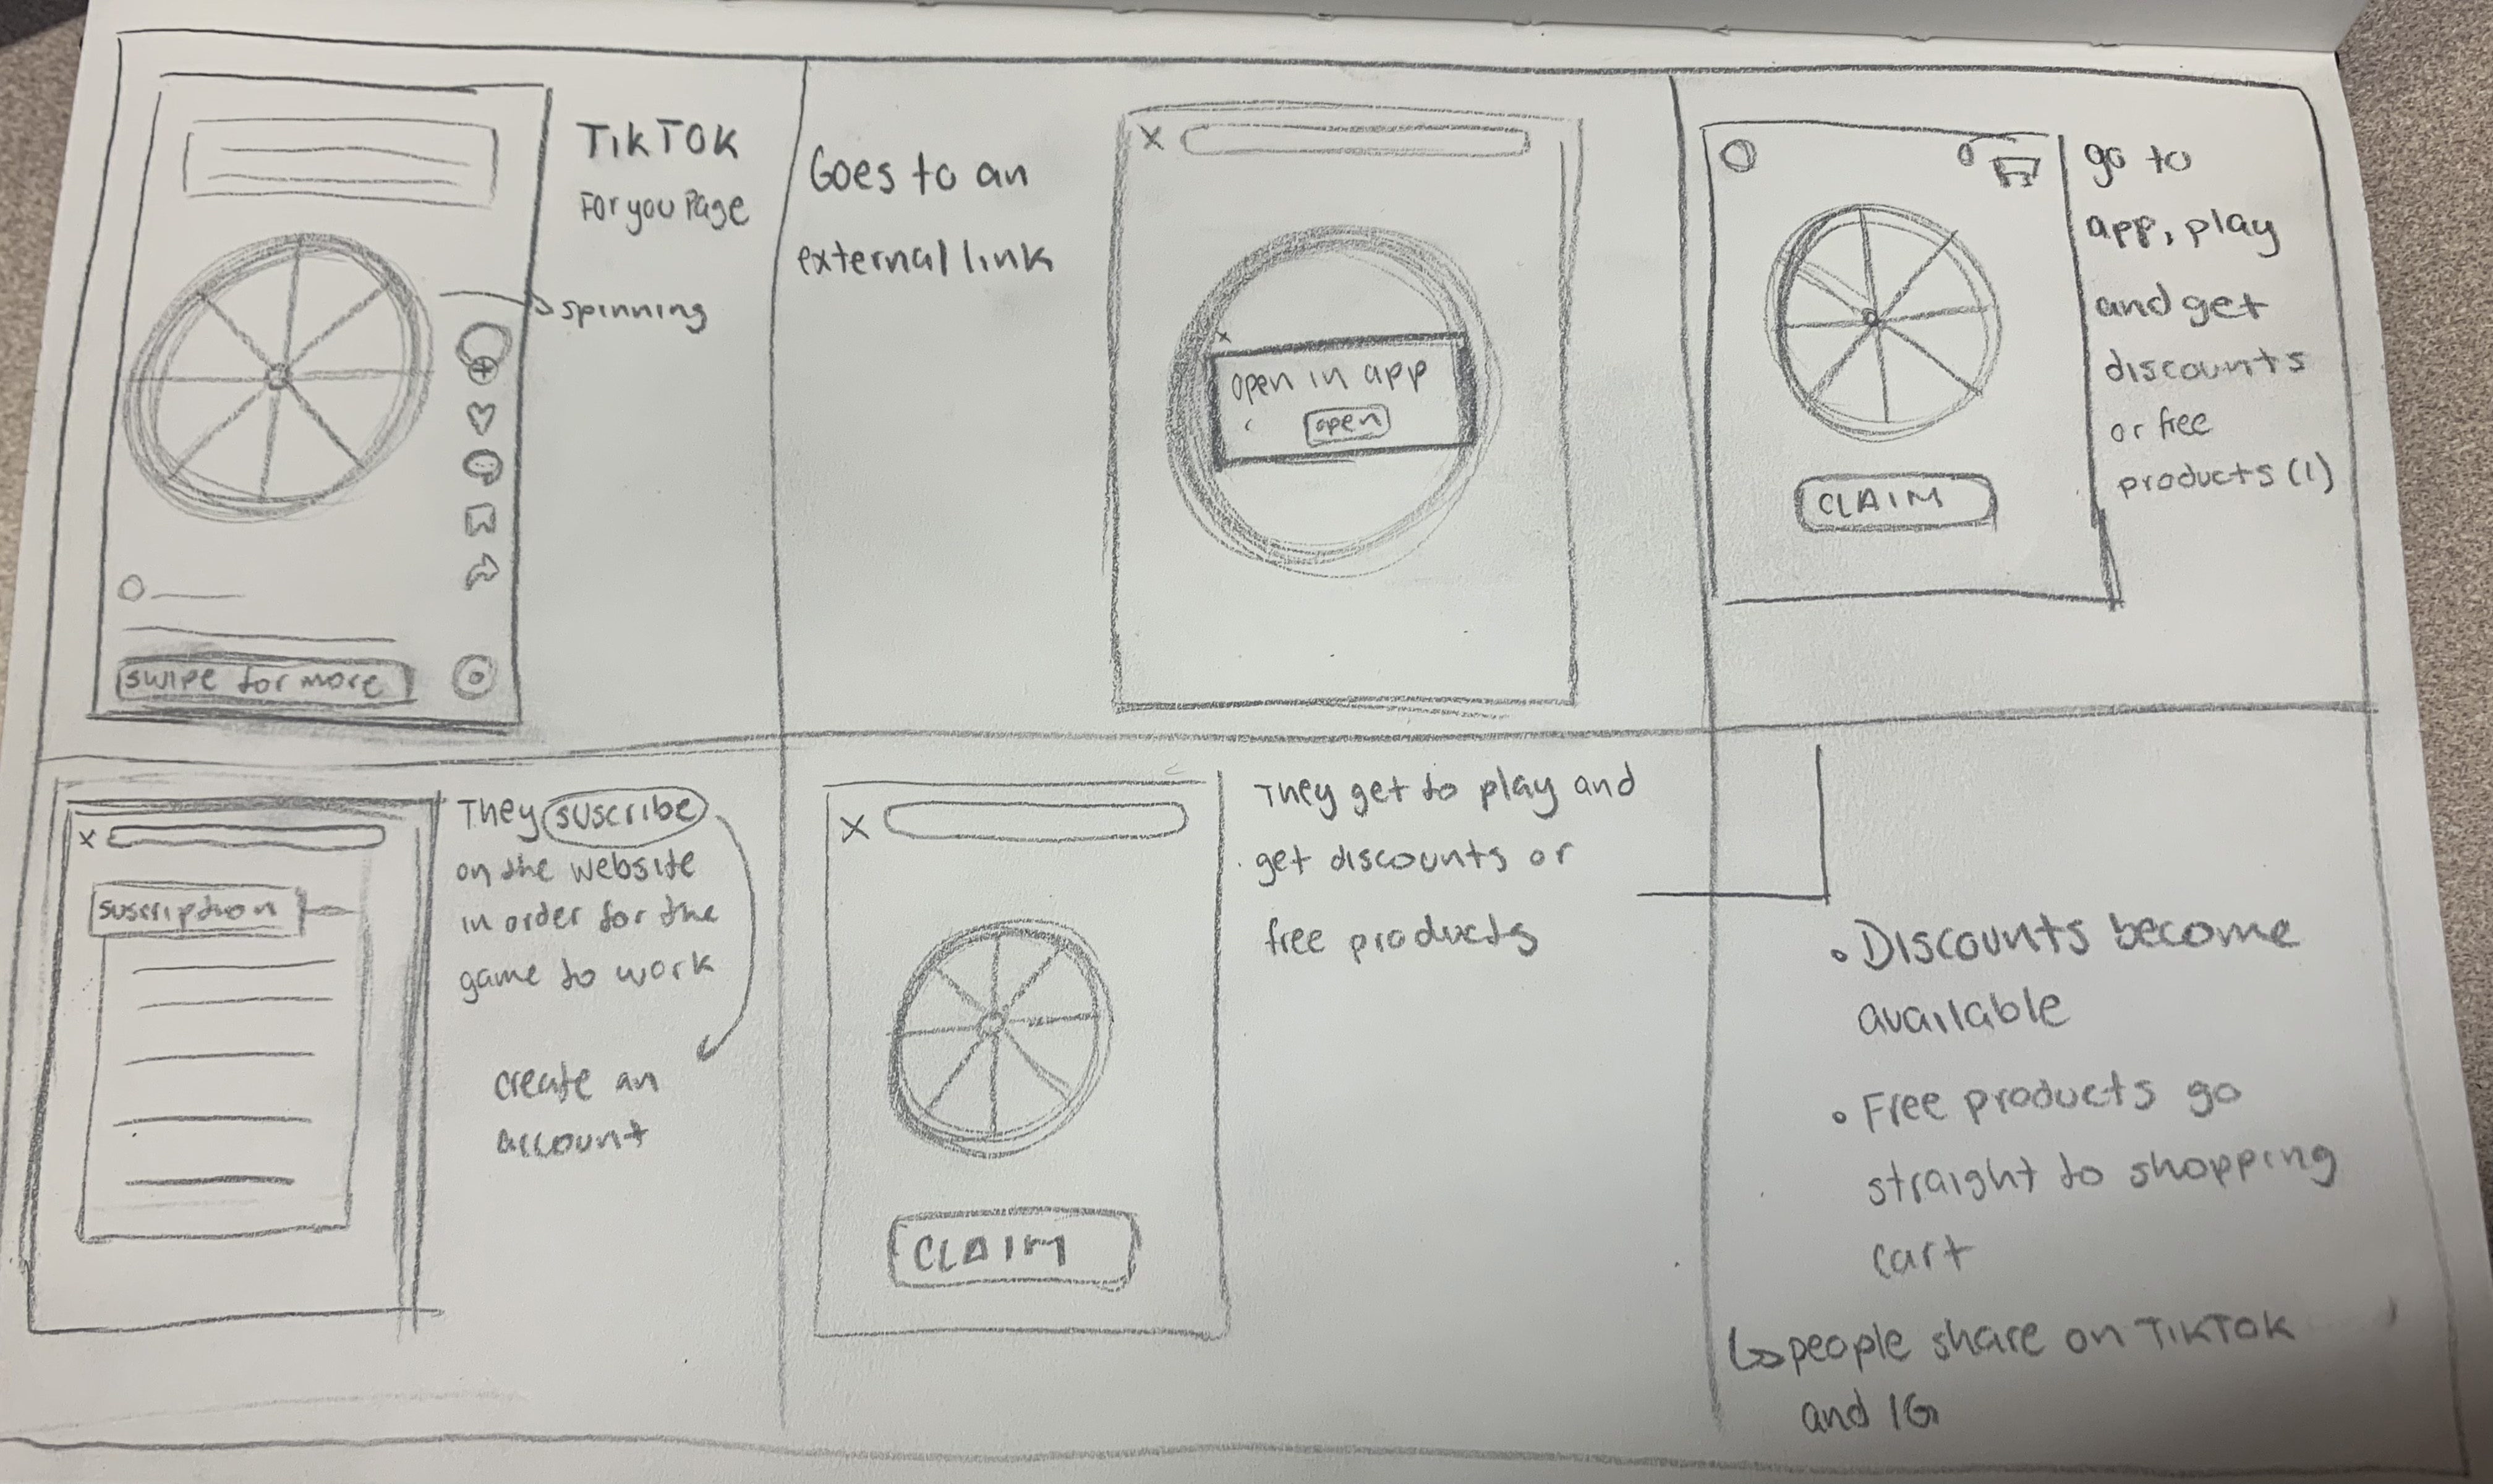 TikTOK
For you Page
spinning
swipe for more
Goes to an
external link
open in app
open
go to
app, play
and get
discounts
or free
products (1)
CLAIM
They suscribe
on the website
in order for the
game to work
create an
account
suscription
They get to play and
get discounts or
free products
CLAIM
• Discounts become
available
• Free products go
straight to shopping
cart
↳ people share on TikTok
and IG